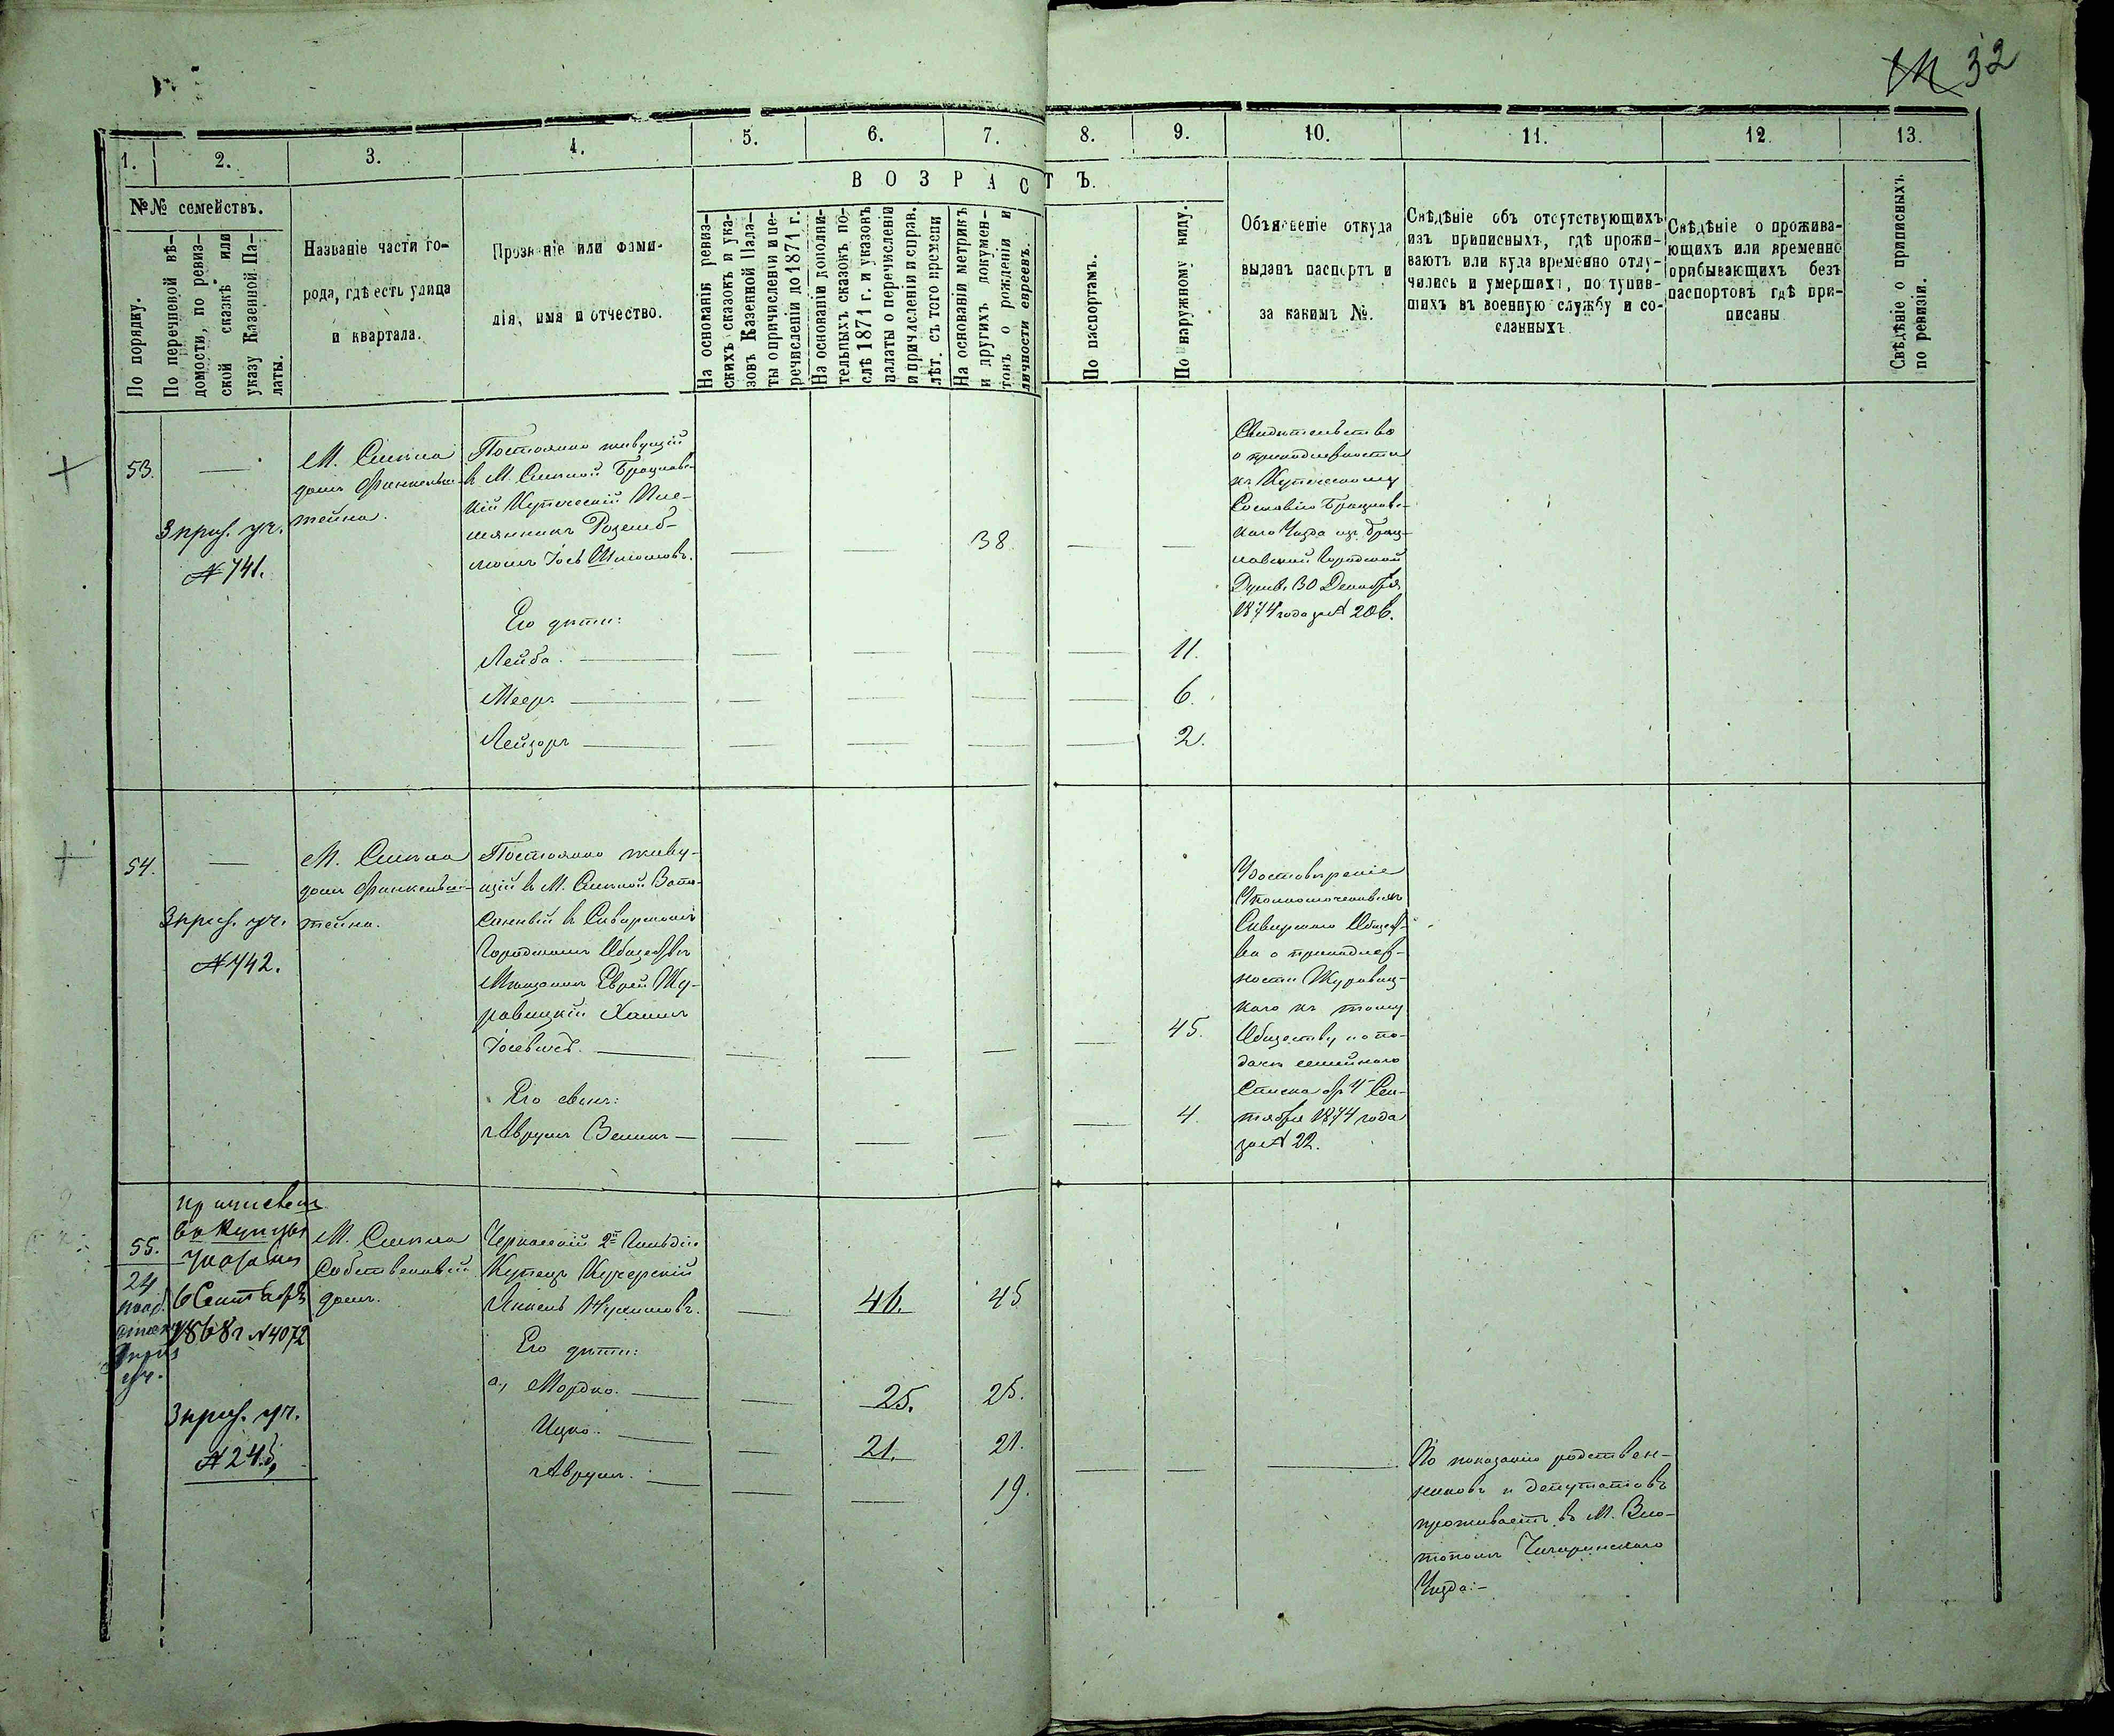 32
1. 2. 3. 4. 5. 6. 7. 8. 9. 10. 11. 12. 13.
ВОЗРАСТЪ.
№№ семействъ.
По порядку.
По перечневой вѣ-
домости, по ревиз-
ской сказкѣ или
указу Казенной Па-
латы.
Названіе части го-
рода, гдѣ есть улица
и квартала.
Прозваніе или фами-
лія, имя и отчество.
На основаніи ревиз-
скихъ сказокъ и ука-
зовъ Казенной Пала-
ты о причисленіи и пе-
речисленіи до 1871 г.
На основаніи дополни-
тельныхъ сказокъ по-
слѣ 1871 г. и указовъ
палаты о перечислени
и причисленіи и справ.
лѣт. съ того времени
На основаніи метрикъ
и другихъ докумен-
товъ о рожденіи и
личности евреевъ.
По паспортамъ.
По наружному виду.
Объясненіе откуда
выданъ паспортъ и
за какимъ №.
Свѣдѣніе объ отсутствующихъ
изъ приписныхъ, гдѣ прожи-
ваютъ или куда временно отлу-
чились и умершихъ, поступив-
шихъ въ военную службу и со-
сланныхъ
Свѣдѣніе о прожива-
ющихъ или временно
прибывающихъ безъ
паспортовъ гдѣ при-
писаны
Свѣдѣніе о приписныхъ
по ревизіи.
53.
3 приз. уч.
№ 741.
М. Смила
домъ Финкельш-
тейна.
Постоянно живущій
в М. Смѣлой Брацлавс-
кій Купеческій Пле-
мянникъ Розенб-
люмъ Іось Шлiомовъ.
38
Его дѣти:
Лейба. 11.
Мееръ 6.
Лейзоръ 2.
Свидѣтельство
о принадлежности
къ Купеческому
Сословію Брацлавс-
каго Уѣзда изъ Брац-
лавской Городской
Думы 30 Декабря
1874 года за № 206.
54.
3 приз. уч.
№ 742.
М. Смила
домъ Финкельш-
тейна.
Постоянно живу-
щій в М. Смѣлой Запи-
санный в Сквирскомъ
Городскомъ Обществѣ
Мѣщанинъ Еврей Жу-
равицкій Хаимъ
Іосевичъ. 45.
Его сынъ:
Аврумъ Зеликъ 4.
Удостовѣреніе
Уполномоченныхъ
Сквирскаго Общест-
ва о принадлеж-
ности Журавиц-
каго къ тому
Обществу и о по-
дачѣ семейнаго
Списка от 4 Сен-
тября 1874 года
за № 22.
55.
24
причисленъ
въ купцы
указомъ
6 Сентября
1868 г №4072
3 приз. уч.
№ 24.
М. Смила
Собственный
домъ.
Черкаскій 2й Гильдіи
Купецъ Кучерскій
Янкель Нухимовъ. 46. 45
Его дѣти:
а, Мордко. 25. 25.
Ицко. 21. 21.
Аврумъ. 19.
По показанію родствен-
никовъ и депутатовъ
проживаетъ въ М. Зло-
тополѣ Чигиринскаго
Уѣзда:-